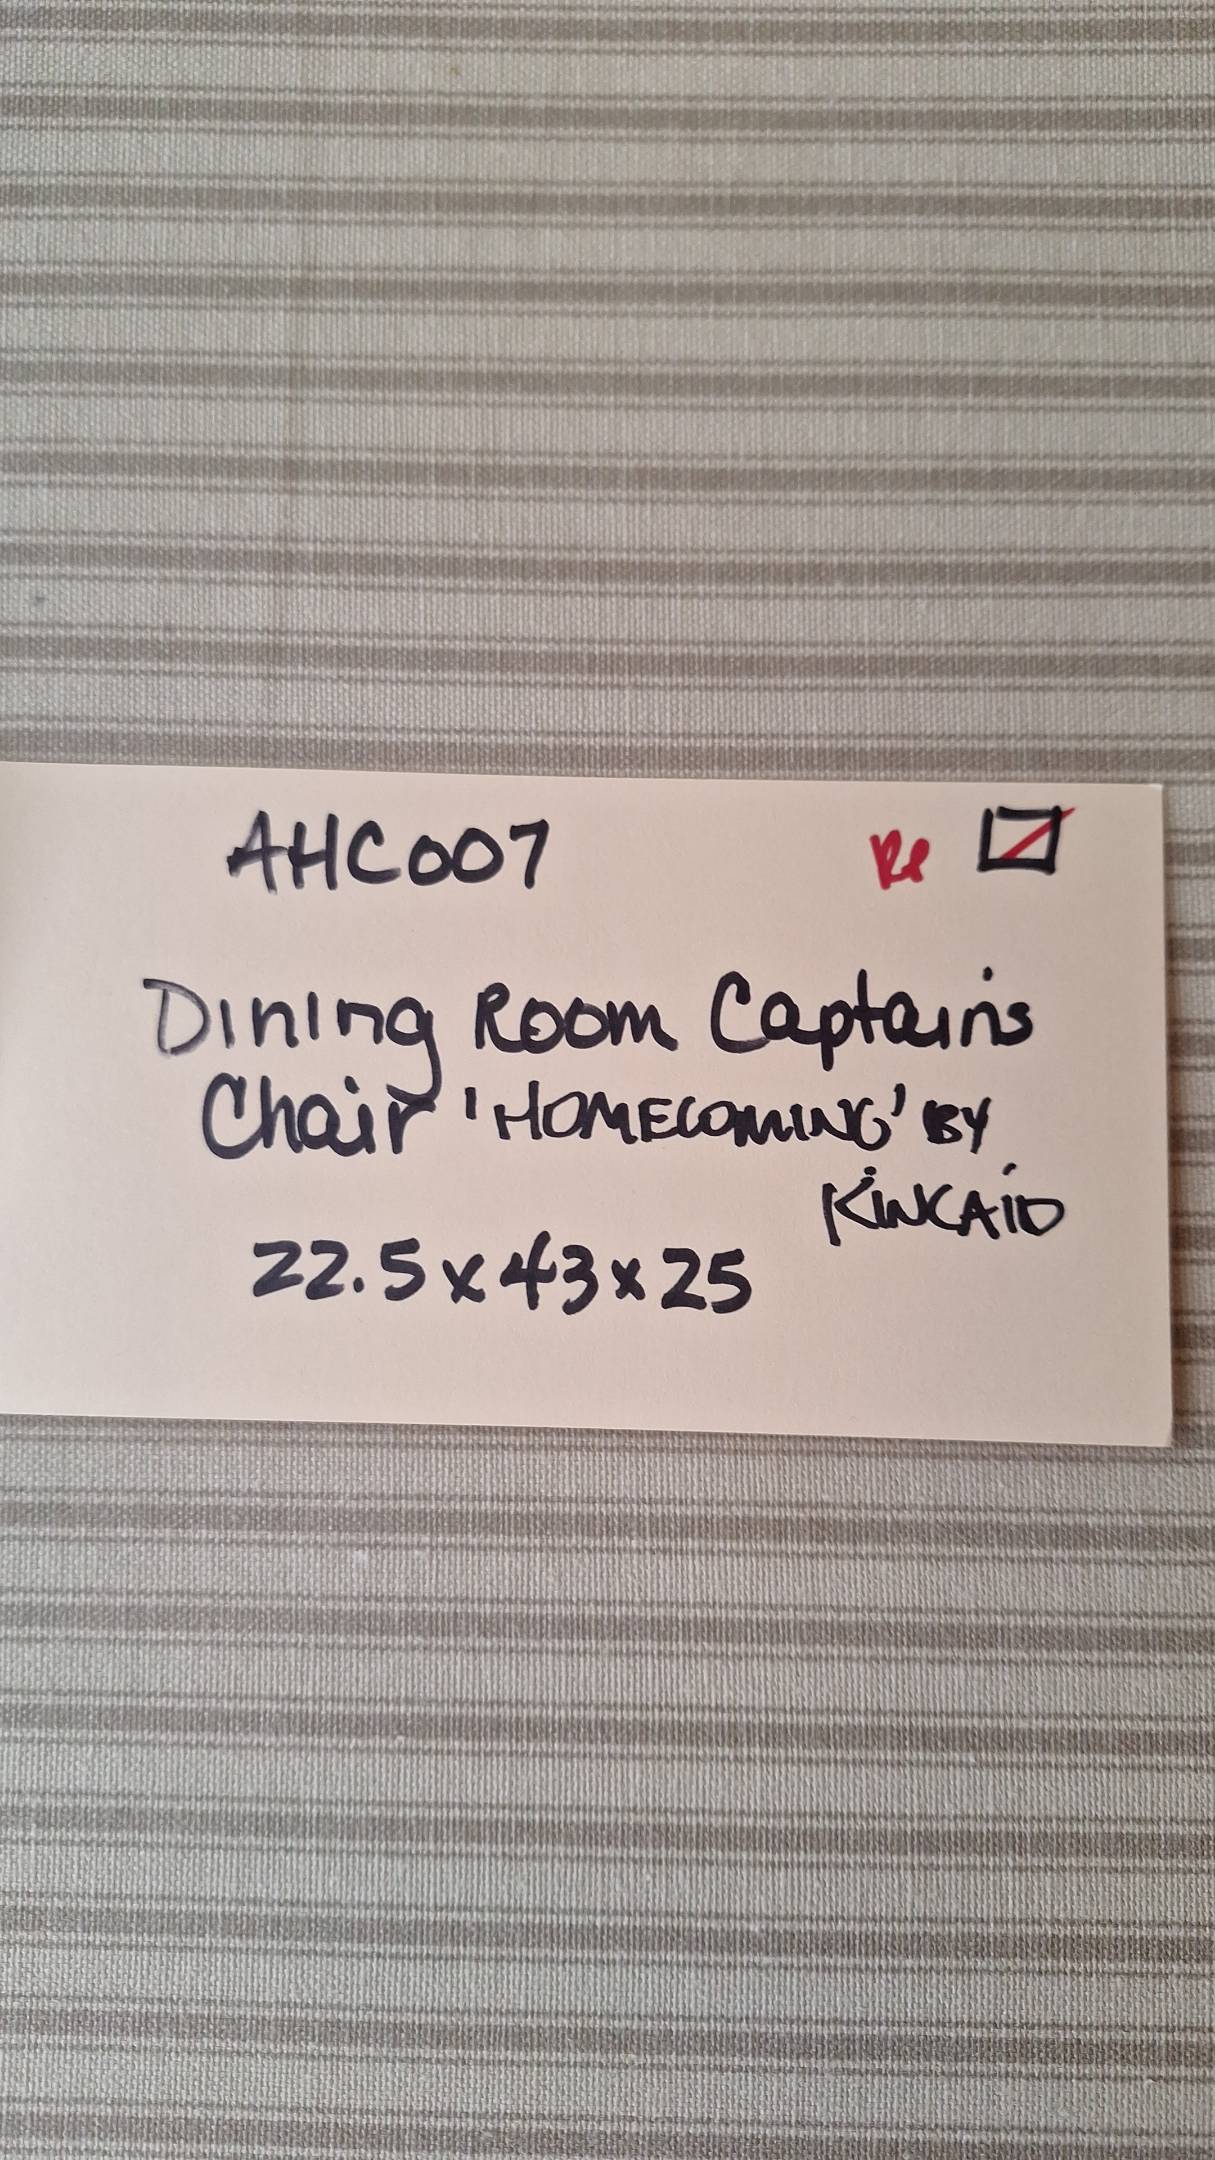 AHC007 Re
Dining Room Captain's
Chair 'HOMECOMING' BY
KINCAID
22.5 x 43 x 25